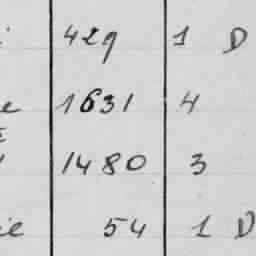 429 1 D
1631 4
1480 3
54 1 D